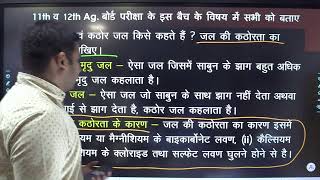 11th व 12th Ag. बोर्ड परीक्षा के इस बैच के विषय में सभी को बताए
वं कठोर जल किसे कहते हैं ? जल की कठोरता का
खिए।
मृदु जल – ऐसा जल जिसमें साबुन के झाग बहुत अधिक
जल कहलाता है।
जल – ऐसा जल जो साबुन के साथ झाग नहीं देता अथवा
नाई से झाग देता है, कठोर जल कहलाता है।
कठोरता के कारण – जल की कठोरता का कारण इसमें
यम या मैग्नीशियम के बाइकार्बोनेट लवण, (ii) कैल्सियम
शियम के क्लोराइड तथा सल्फेट लवण घुलने होने से है।